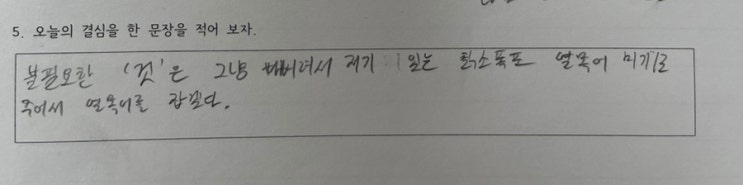 5. 오늘의 결심을 한 문장을 적어 보자.
불필요한 '것'은 그냥 버려서 저기 있는 칡소폭포 열목어 미끼로
주어서 열목어를 잡겠다.